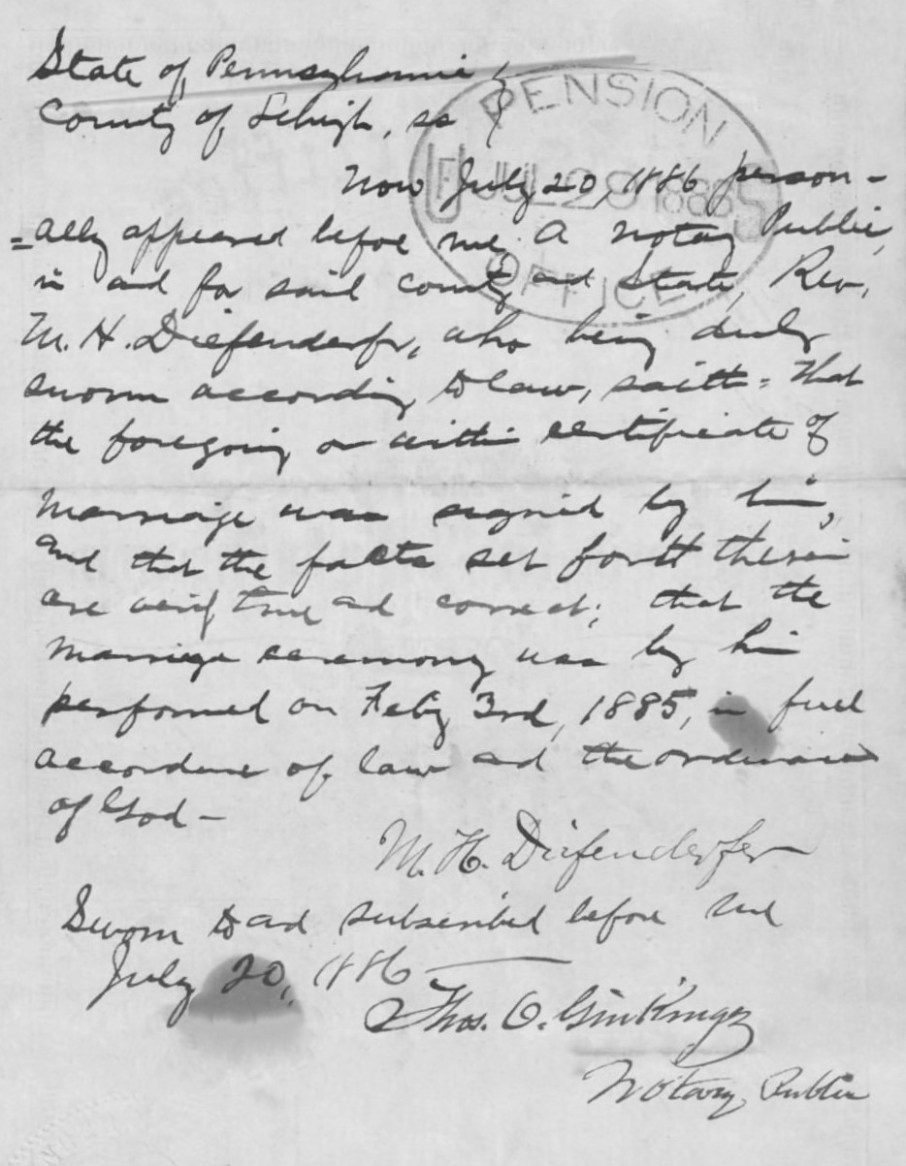 State of Pennsylvania }
County of Lehigh, ss
PENSION
U.S.
JUL 28 1886
OFFICE
Now July 20, 1886 person-
=ally appeared before me, a Notary Public,
in and for said county and State, Rev.
M. H. Diefenderfer, who being duly
sworn according to law, saith = that
the foregoing or within certificate of
marriage was signed by him,
and that the facts set forth therein
are true and correct; that the
marriage ceremony was by him
performed on Feby 3rd, 1885, in full
accordance of law and the ordinance
of God –
M. H. Diefenderfer
Sworn to and subscribed before me
July 20, 1886 –
Thos. O. Ginkinger
Notary Public